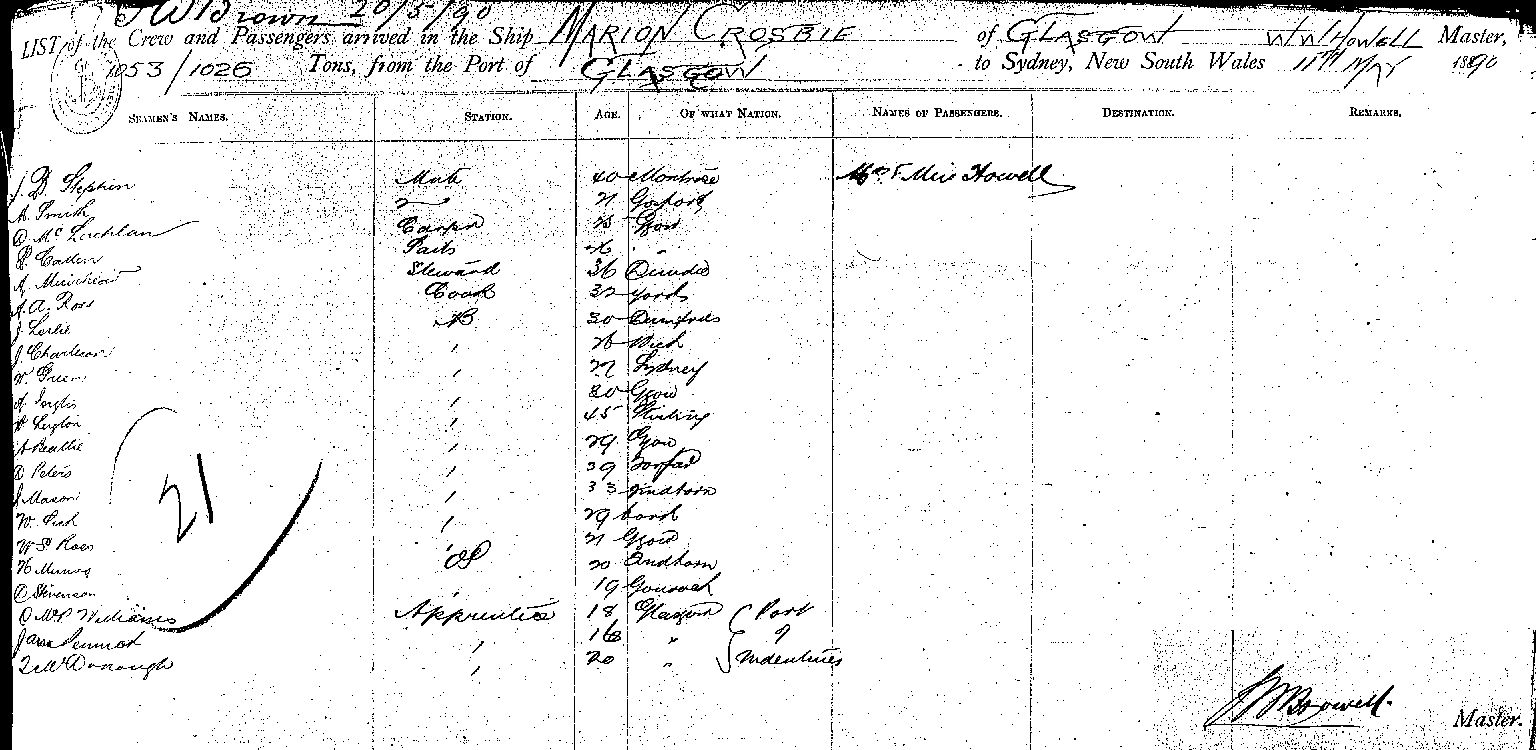 Brown 20/5/90
LIST of the Crew and Passengers arrived in the Ship MARION CROSBIE of GLASGOW W W HOWELL Master,
1053/1026 Tons, from the Port of GLASGOW to Sydney, New South Wales 11th May 1890
SEAMEN'S NAMES. STATION. AGE. OF WHAT NATION. NAMES OF PASSENGERS. DESTINATION. REMARKS.
J. D. Stephen Mate 40 Montrose Miss Howell
A. Smith 21 Gosport
D. Mc Lachlan Carpen Ggow
Sails "
A Steward 36 Dundee
A. A. Ross Cook 32
J Leslie AB 30 Dumfries
J. Charleson " 26 Wick
W. Green " Sydney
" 30 Ggow
" 45 Stirling
A Beattie " 29 Ggow
D Peters " 39 Forfar
J Mason " 33 Findhorn
W. " 29
W S Ross " 21 Ggow
H Munro OS 20 Findhorn
D Stevenson " 19 Gourock
Williams Apprentice 18 Glasgow Port
" 16 " of
McDonough " 20 " Indentures
21
Howell
Master.